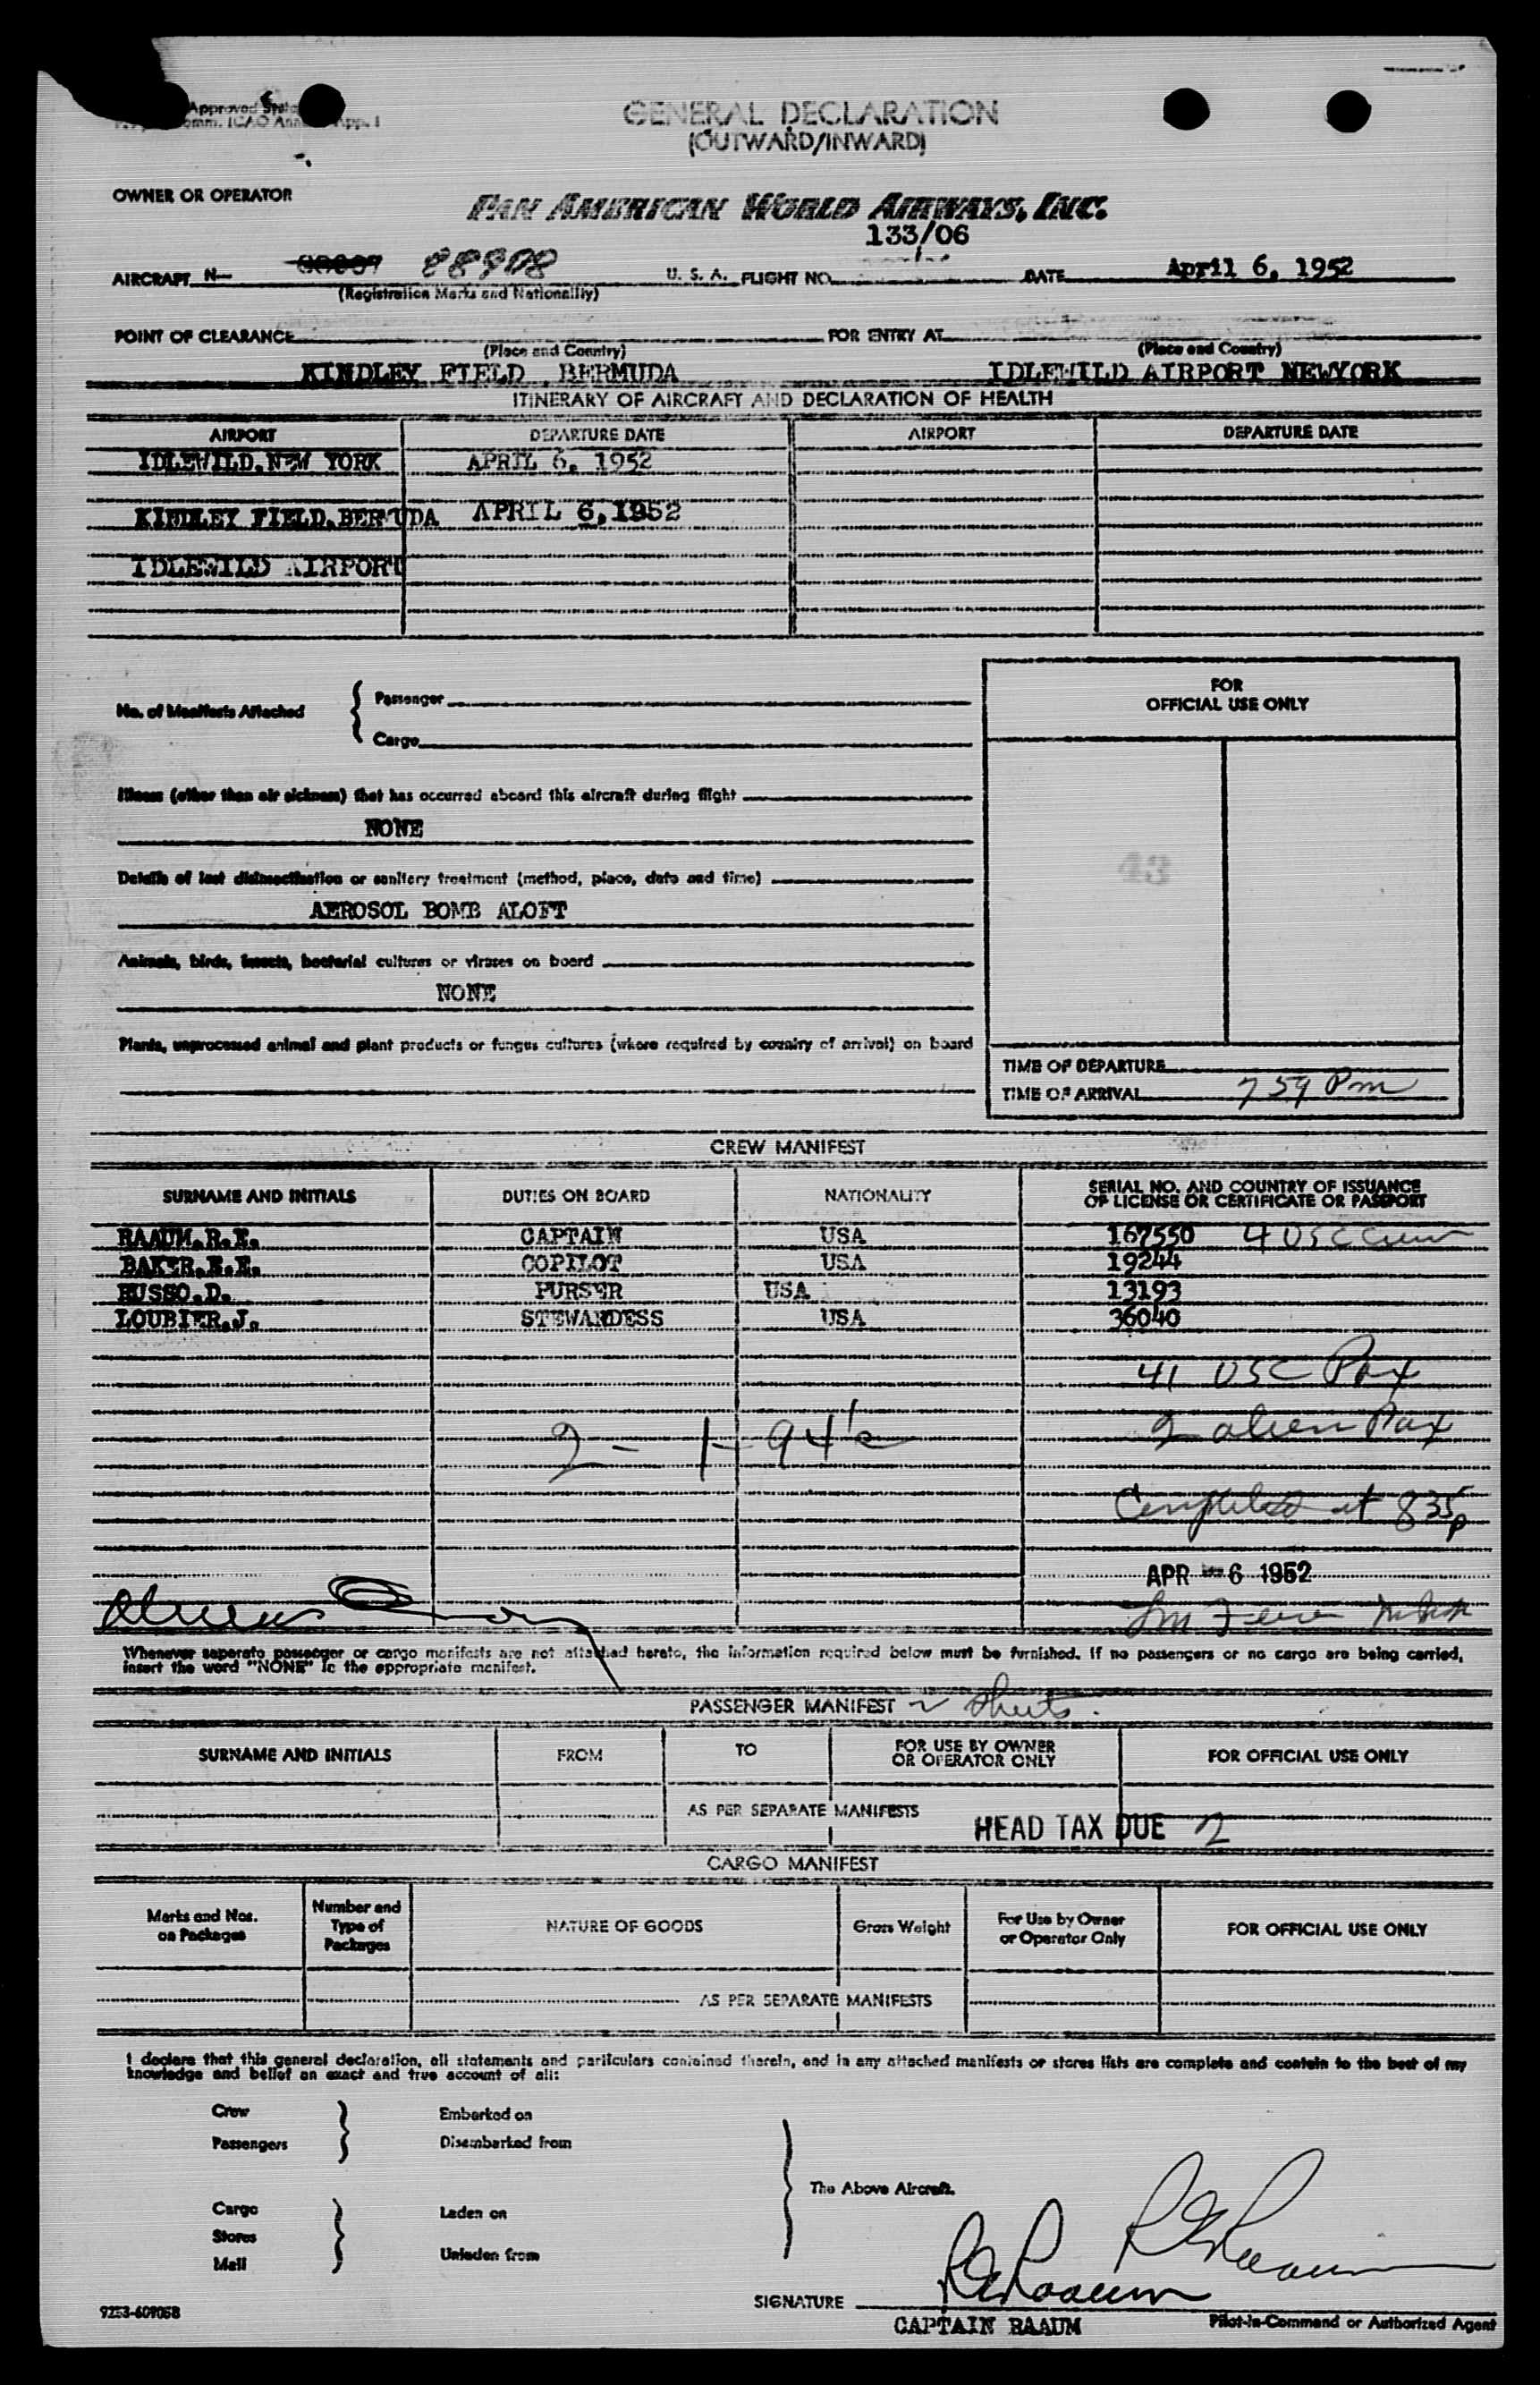 Approved
omm. ICAO Ann App. I
GENERAL DECLARATION
(OUTWARD/INWARD)
OWNER OR OPERATOR
PAN AMERICAN WORLD AIRWAYS, INC.
133/06
AIRCRAFT N- 88908 U. S. A. FLIGHT NO. DATE April 6, 1952
(Registration Marks and Nationality)
POINT OF CLEARANCE FOR ENTRY AT
(Place and Country) (Place and Country)
KINDLEY FIELD, BERMUDA IDLEWILD AIRPORT NEWYORK
ITINERARY OF AIRCRAFT AND DECLARATION OF HEALTH
AIRPORT DEPARTURE DATE AIRPORT DEPARTURE DATE
IDLEWILD, NEW YORK APRIL 6, 1952
KINDLEY FIELD, BERMUDA APRIL 6, 1952
IDLEWILD AIRPORT
FOR
OFFICIAL USE ONLY
No. of Manifests Attached { Passenger
Cargo
Illness (other than air sickness) that has occurred aboard this aircraft during flight
NONE
Details of last disinsectization or sanitary treatment (method, place, date and time)
43
AEROSOL BOMB ALOFT
Animals, birds, insects, bacterial cultures or viruses on board
NONE
Plants, unprocessed animal and plant products or fungus cultures (where required by country of arrival) on board
TIME OF DEPARTURE
TIME OF ARRIVAL 7 59 Pm
CREW MANIFEST
SURNAME AND INITIALS DUTIES ON BOARD NATIONALITY SERIAL NO. AND COUNTRY OF ISSUANCE
OF LICENSE OR CERTIFICATE OR PASSPORT
RAAUM, R.E. CAPTAIN USA 167550 4 USC Crew
BAKER, E.E. COPILOT USA 19244
RUSSO, D. PURSER USA 13193
LOUBIER, J. STEWARDESS USA 36040
41 USC Pax
2 alien Pax
2 - I-94's
Completed at 835p
APR - 6 1952
Whenever separate passenger or cargo manifests are not attached hereto, the information required below must be furnished. If no passengers or no cargo are being carried,
insert the word "NONE" in the appropriate manifest.
PASSENGER MANIFEST 2 sheets.
SURNAME AND INITIALS FROM TO FOR USE BY OWNER
OR OPERATOR ONLY FOR OFFICIAL USE ONLY
AS PER SEPARATE MANIFESTS
HEAD TAX DUE 2
CARGO MANIFEST
Marks and Nos.
on Packages Number and
Type of
Packages NATURE OF GOODS Gross Weight For Use by Owner
or Operator Only FOR OFFICIAL USE ONLY
AS PER SEPARATE MANIFESTS
I declare that this general declaration, all statements and particulars contained therein, and in any attached manifests or stores lists are complete and contain to the best of my
knowledge and belief an exact and true account of all:
Crew Embarked on
Passengers Disembarked from
The Above Aircraft.
Cargo Laden on
Stores
Mail Unladen from
R E Raaum
SIGNATURE R E Raaum
9253-609058
CAPTAIN RAAUM Pilot-in-Command or Authorized Agent